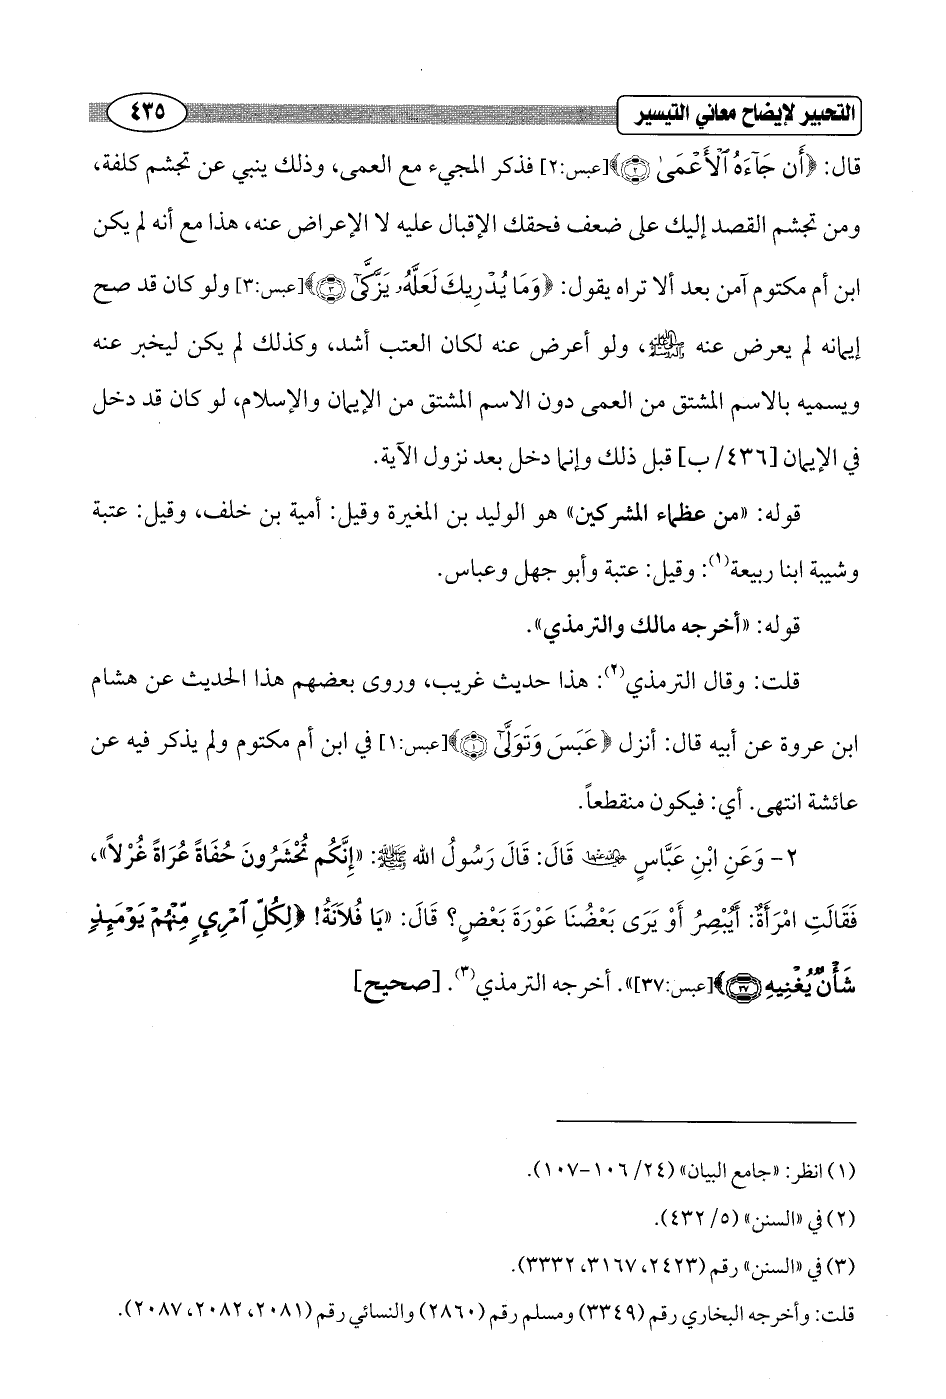 التحبير لإيضاح معاني التيسير ٤٣٥
قال: ﴿أَن جَآءَهُ ٱلْأَعْمَىٰ ۝٢﴾[عبس:٢] فذكر المجيء مع العمى، وذلك ينبي عن تجشم كلفة،
ومن تجشم القصد إليك على ضعف فحقك الإقبال عليه لا الإعراض عنه، هذا مع أنه لم يكن
ابن أم مكتوم آمن بعد ألا تراه يقول: ﴿وَمَا يُدْرِيكَ لَعَلَّهُۥ يَزَّكَّىٰٓ ۝٣﴾[عبس:٣] ولو كان قد صح
إيمانه لم يعرض عنه ﷺ، ولو أعرض عنه لكان العتب أشد، وكذلك لم يكن ليخبر عنه
ويسميه بالاسم المشتق من العمى دون الاسم المشتق من الإيمان والإسلام، لو كان قد دخل
في الإيمان [٤٣٦/ ب] قبل ذلك وإنما دخل بعد نزول الآية.
قوله: «من عظماء المشركين» هو الوليد بن المغيرة وقيل: أمية بن خلف، وقيل: عتبة
وشيبة ابنا ربيعة(١): وقيل: عتبة وأبو جهل وعباس.
قوله: «أخرجه مالك والترمذي».
قلت: وقال الترمذي(٢): هذا حديث غريب، وروى بعضهم هذا الحديث عن هشام
ابن عروة عن أبيه قال: أنزل ﴿عَبَسَ وَتَوَلَّىٰٓ ۝١﴾[عبس:١] في ابن أم مكتوم ولم يذكر فيه عن
عائشة انتهى. أي: فيكون منقطعاً.
٢- وَعَنِ ابْنِ عَبَّاسٍ رضي الله عنهما قَالَ: قَالَ رَسُولُ الله ﷺ: «إِنَّكُم تُحْشَرُونَ حُفَاةً عُرَاةً غُرْلاً»،
فَقَالَتِ امْرَأَةٌ: أَيُبْصِرُ أَوْ يَرَى بَعْضُنَا عَوْرَةَ بَعْضٍ؟ قَالَ: «يَا فُلَانَةُ! ﴿لِكُلِّ ٱمْرِيٍٕ مِّنْهُمْ يَوْمَئِذٍ
شَأْنٌ يُغْنِيهِ ۝٣٧﴾[عبس:٣٧]». أخرجه الترمذي(٣). [صحيح]
(١) انظر: «جامع البيان» (٢٤/ ١٠٦-١٠٧).
(٢) في «السنن» (٥/ ٤٣٢).
(٣) في «السنن» رقم (٢٤٢٣، ٣١٦٧، ٣٣٣٢).
قلت: وأخرجه البخاري رقم (٣٣٤٩) ومسلم رقم (٢٨٦٠) والنسائي رقم (٢٠٨١، ٢٠٨٢، ٢٠٨٧).